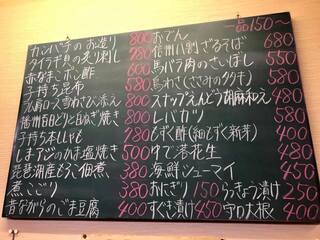 一品150〜
カンパチのお造り 800
タイラギ貝の炙り刺し 780
赤なまこポン酢
子持ち昆布 580
雪わさび添え 800
播州百日どりと白ねぎ焼き 800
子持ち本ししゃも 480
しまアジのかま塩焼き 500
琵琶湖産もろこ佃煮 380
煮こごり 380
昔ながらのごま豆腐 400
おでん
信州八割ざるそば 680
馬バラ肉のさいぼし 550
鳥わさ(ささみのタタキ) 580
スナップえんどう胡麻和え 480
レバカツ 580
もずく酢(細もずく新芽) 400
ゆで落花生 480
海鮮シューマイ 450
おにぎり 150
らっきょう漬け 250
すぐき漬け 450
守口大根 400